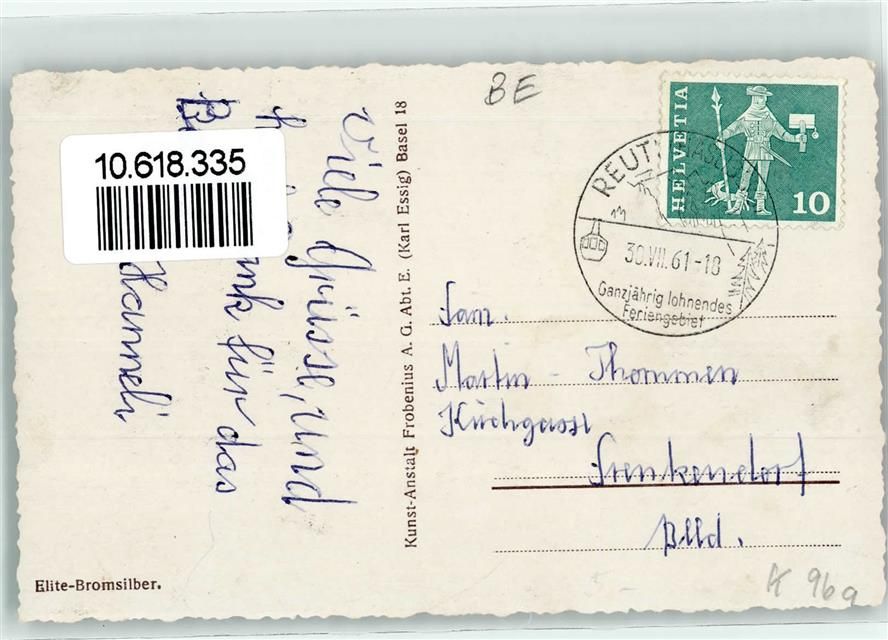 BE
10.618.335
Viele Grüsse, und
für das
Hanneli
Kunst-Anstalt Frobenius A. G. Abt. E. (Karl Essig) Basel 18
HELVETIA
10
REUTI HASLIB
30.VII.61-18
Ganzjährig lohnendes
Feriengebiet
Fam.
Martin - Thommen
Kirchgasse
Frenkendorf
Blld.
Elite-Bromsilber.
K 969